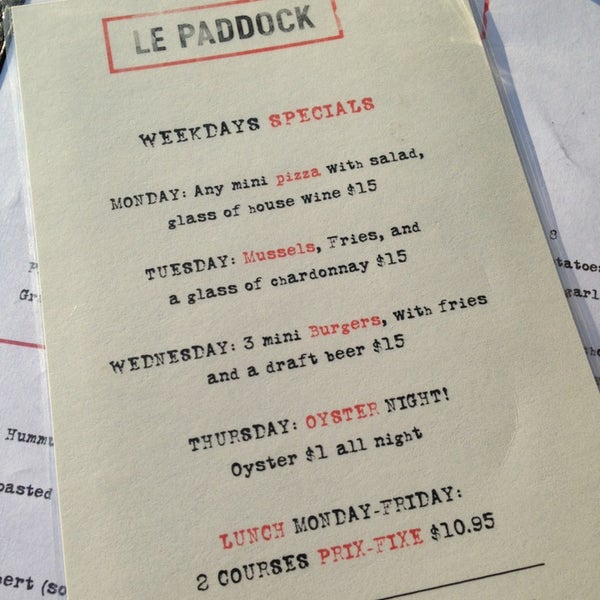 LE PADDOCK
WEEKDAYS SPECIALS
MONDAY: Any mini pizza with salad,
glass of house wine $15
TUESDAY: Mussels, Fries, and
a glass of chardonnay $15
WEDNESDAY: 3 mini Burgers, with fries
and a draft beer $15
THURSDAY: OYSTER NIGHT!
Oyster $1 all night
LUNCH MONDAY-FRIDAY:
2 COURSES PRIX-FIXE $10.95